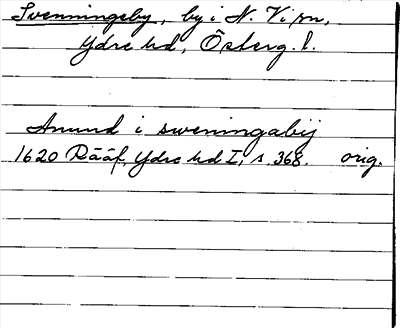 Svenningeby, by i N. Vi sn,
Ydre hd, Österg. l.
Anund i sweningabÿ
1620 Rääf, Ydre hd I, s. 368. orig.